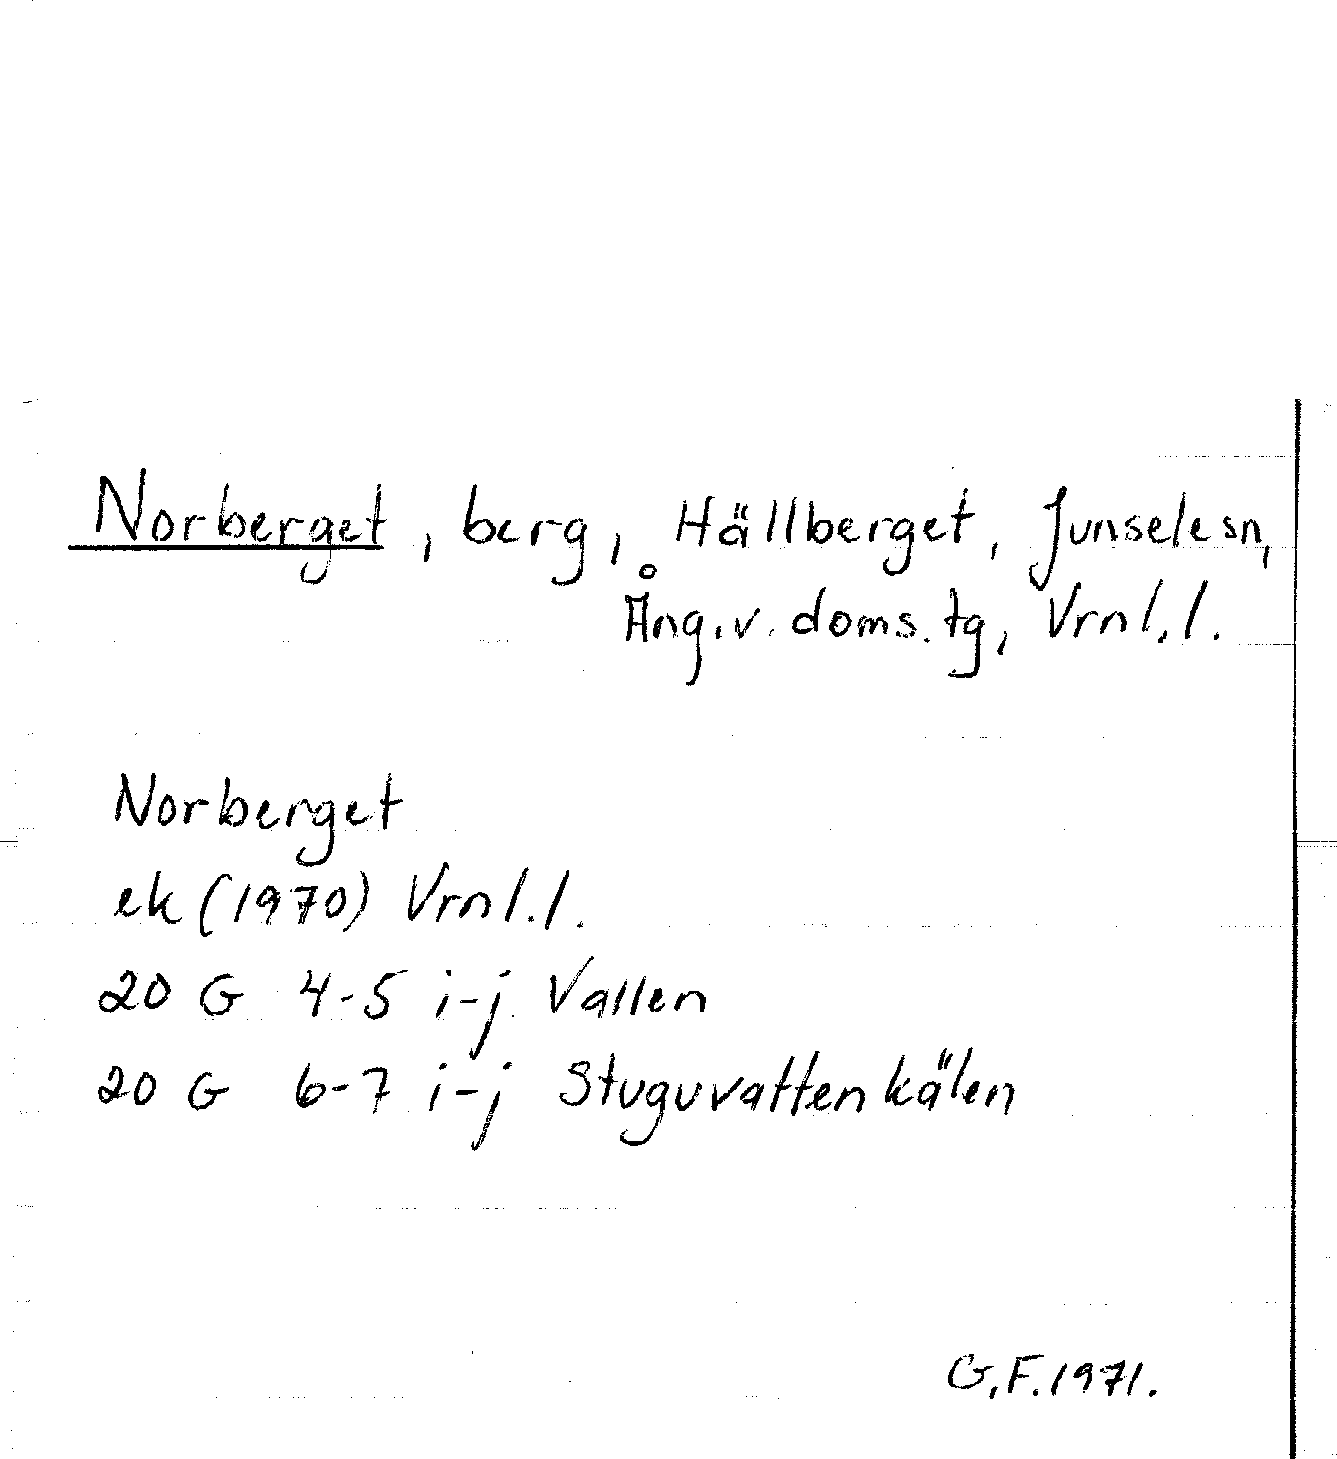 Norberget, berg, Hällberget, Junselesn,
Ång.v. doms.tg, Vrnl.l.
Norberget
ek (1970) Vrnl.l.
20 G 4-5 i-j Vallen
20 G 6-7 i-j Stuguvattenkälen
G.F.1971.